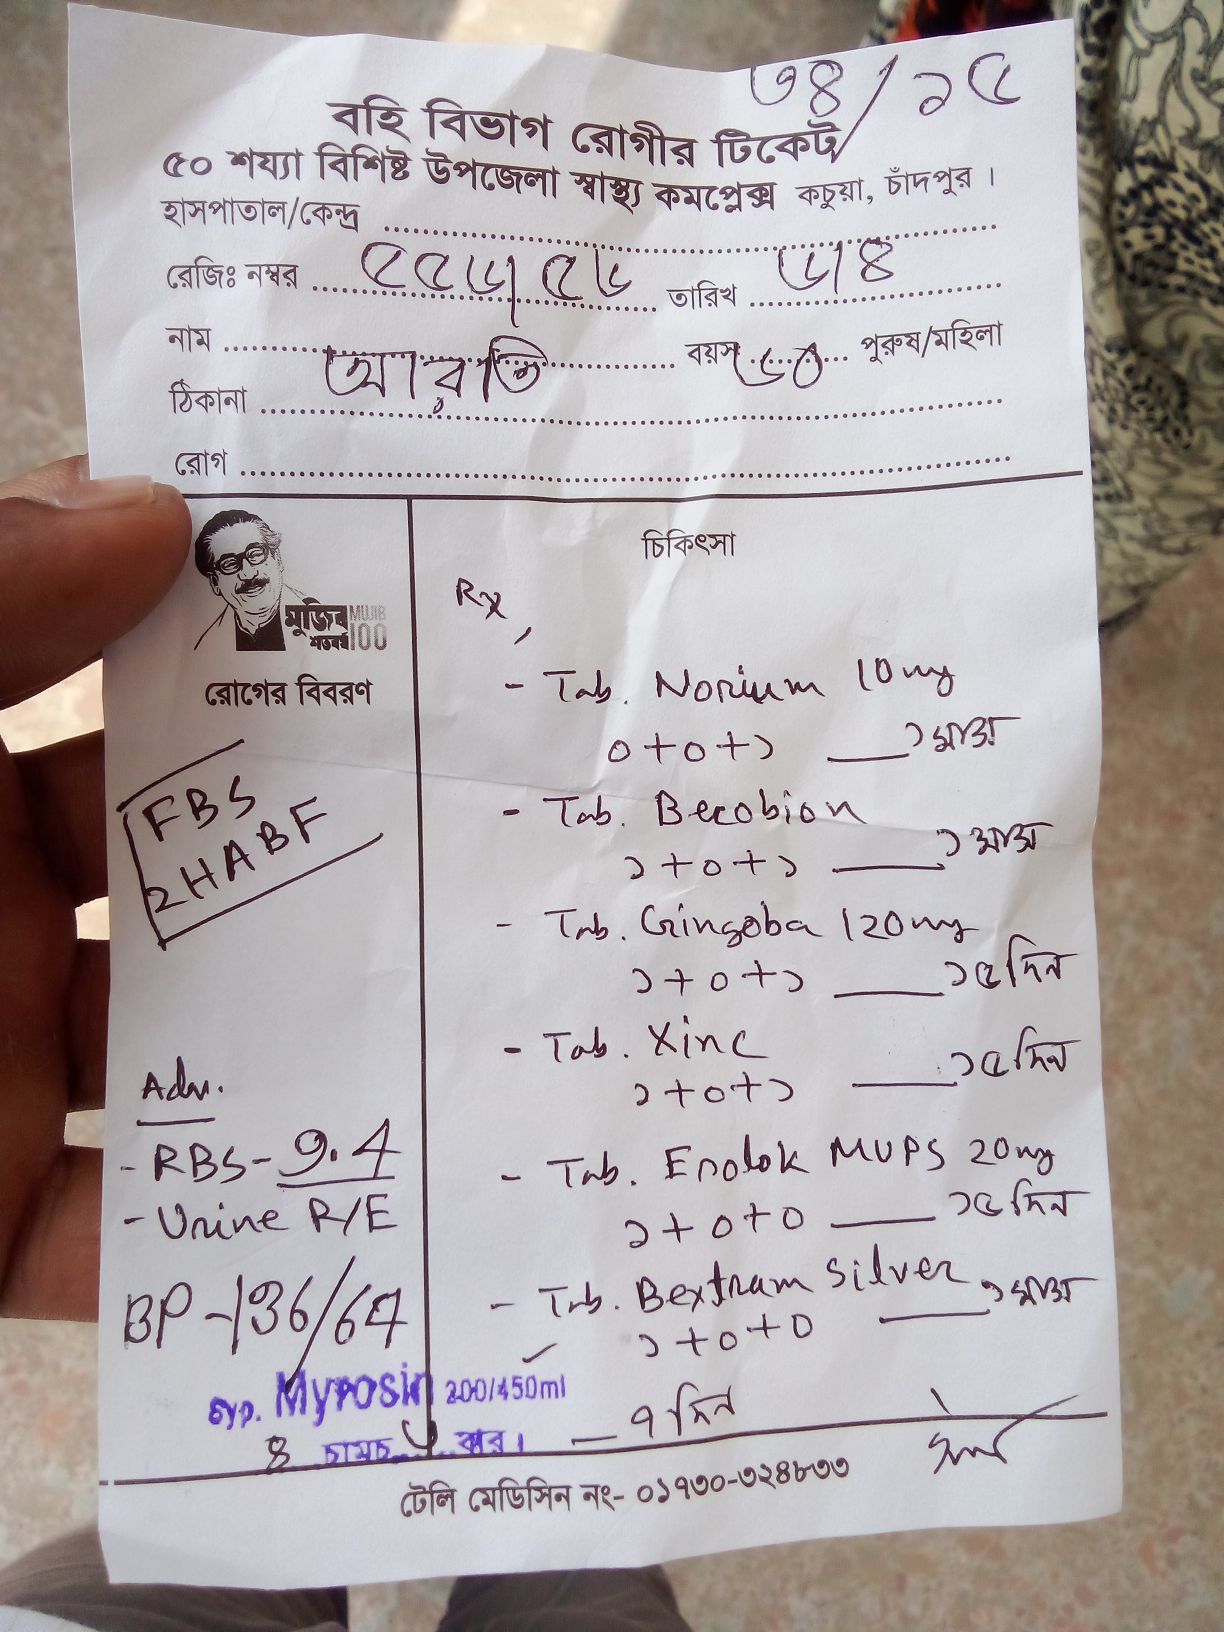 ৩৪/১৫
বহি বিভাগ রোগীর টিকেট
৫০ শয্যা বিশিষ্ট উপজেলা স্বাস্থ্য কমপ্লেক্স কচুয়া, চাঁদপুর ।
হাসপাতাল/কেন্দ্র
রেজিঃ নম্বর তারিখ ৬/৪
নাম আরতি বয়স ৬০ পুরুষ/মহিলা
ঠিকানা
রোগ
মুজিব MUJIB
শতবর্ষ 100
রোগের বিবরণ
FBS
2HABF
Adv.
- RBS - 9.4
- Urine R/E
BP - 136/64
চিকিৎসা
Rx,
- Tab. Norium 10mg
০+০+১ ১ মাস
- Tab. Becobion
১+০+১ ১ মাস
- Tab. Gingoba 120mg
১+০+১ ১৫ দিন
- Tab. Xinc
১+০+১ ১৫ দিন
- Tab. Enolok MUPS 20mg
১+০+০ ১৫ দিন
- Tab. Bextram Silver
১+০+০ ১ মাস
Syp. Myrosin 200/450ml
৪ চামচ বার। — ৭ দিন
টেলি মেডিসিন নং- ০১৭৩০-৩২৪৮৩৩